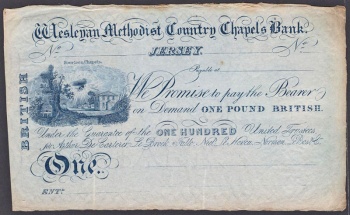 Wesleyan Methodist Country Chapels Bank.
JERSEY
No
No
Payable at
BRITISH
We Promise to pay the Bearer
on Demand ONE POUND BRITISH.
Under the Guarantee of the ONE HUNDRED United Trustees
One.
ENTd.